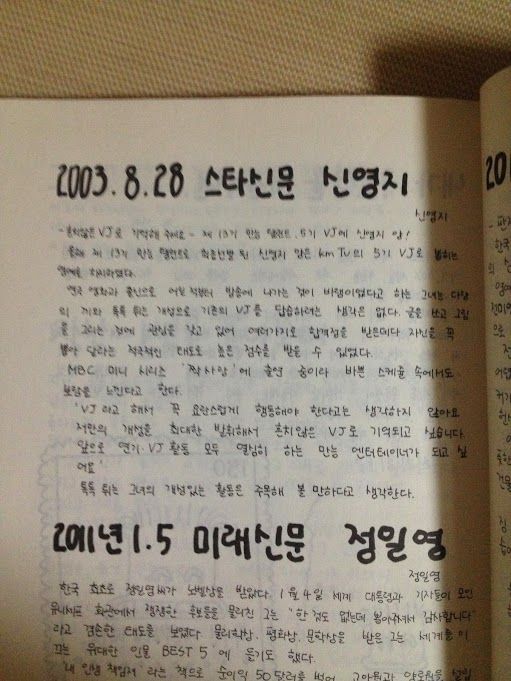 2003. 8. 28 스타신문 신영지
신영지
- 흔치않은 VJ로 기억해 주세요 - 제 13기 만능 탤런트, 5기 VJ에 신영지 양!
올해 제 13기 만능 탤런트로 최종선발 된 신영지 양은 km TV의 5기 VJ로 뽑히는
영예를 차지하였다.
연극 영화과 출신으로 어릴 적부터 방송에 나가는 것이 바램이었다고 하는 그녀는 다량
의 끼와 톡톡 튀는 개성으로 기존의 VJ를 답습하려는 생각은 없다. 글을 쓰고 그림
을 그리는 것에 관심을 갖고 있어 여러가지로 합격점을 받은데다 자신을 꼭
뽑아 달라는 적극적인 태도로 높은 점수를 받을 수 있었다.
MBC 미니 시리즈 '짝사랑'에 출연 중이라 바쁜 스케줄 속에서도
보람을 느낀다고 한다.
'VJ라고 해서 꼭 요란스럽게 행동해야 한다고는 생각하지 않아요
저만의 개성을 최대한 발휘해서 흔치않은 VJ로 기억되고 싶습니다.
앞으로 연기, VJ 활동 모두 열심히 하는 만능 엔터테이너가 되고 싶
어요'
톡톡 튀는 그녀의 개성있는 활동은 주목해 볼 만하다고 생각한다.
2011년 1. 5 미래신문 정일영
정일영
한국 최초로 정일영씨가 노벨상을 받았다. 1월 4일 세계 대통령과 기자들이 모인
유니세프 회관에서 쟁쟁한 후보들을 물리친 그는 "한 것도 없는데 뽑아주셔서 감사합니다"
라고 겸손한 태도를 보였다. 물리학상, 평화상, 문학상을 받은 그는 세계를 이
끄는 위대한 인물 BEST 5'에 들기도 했다.
'내 인생 책임져' 라는 책으로 순이익 50달러를 벌어, 고아원과 양로원을 설립